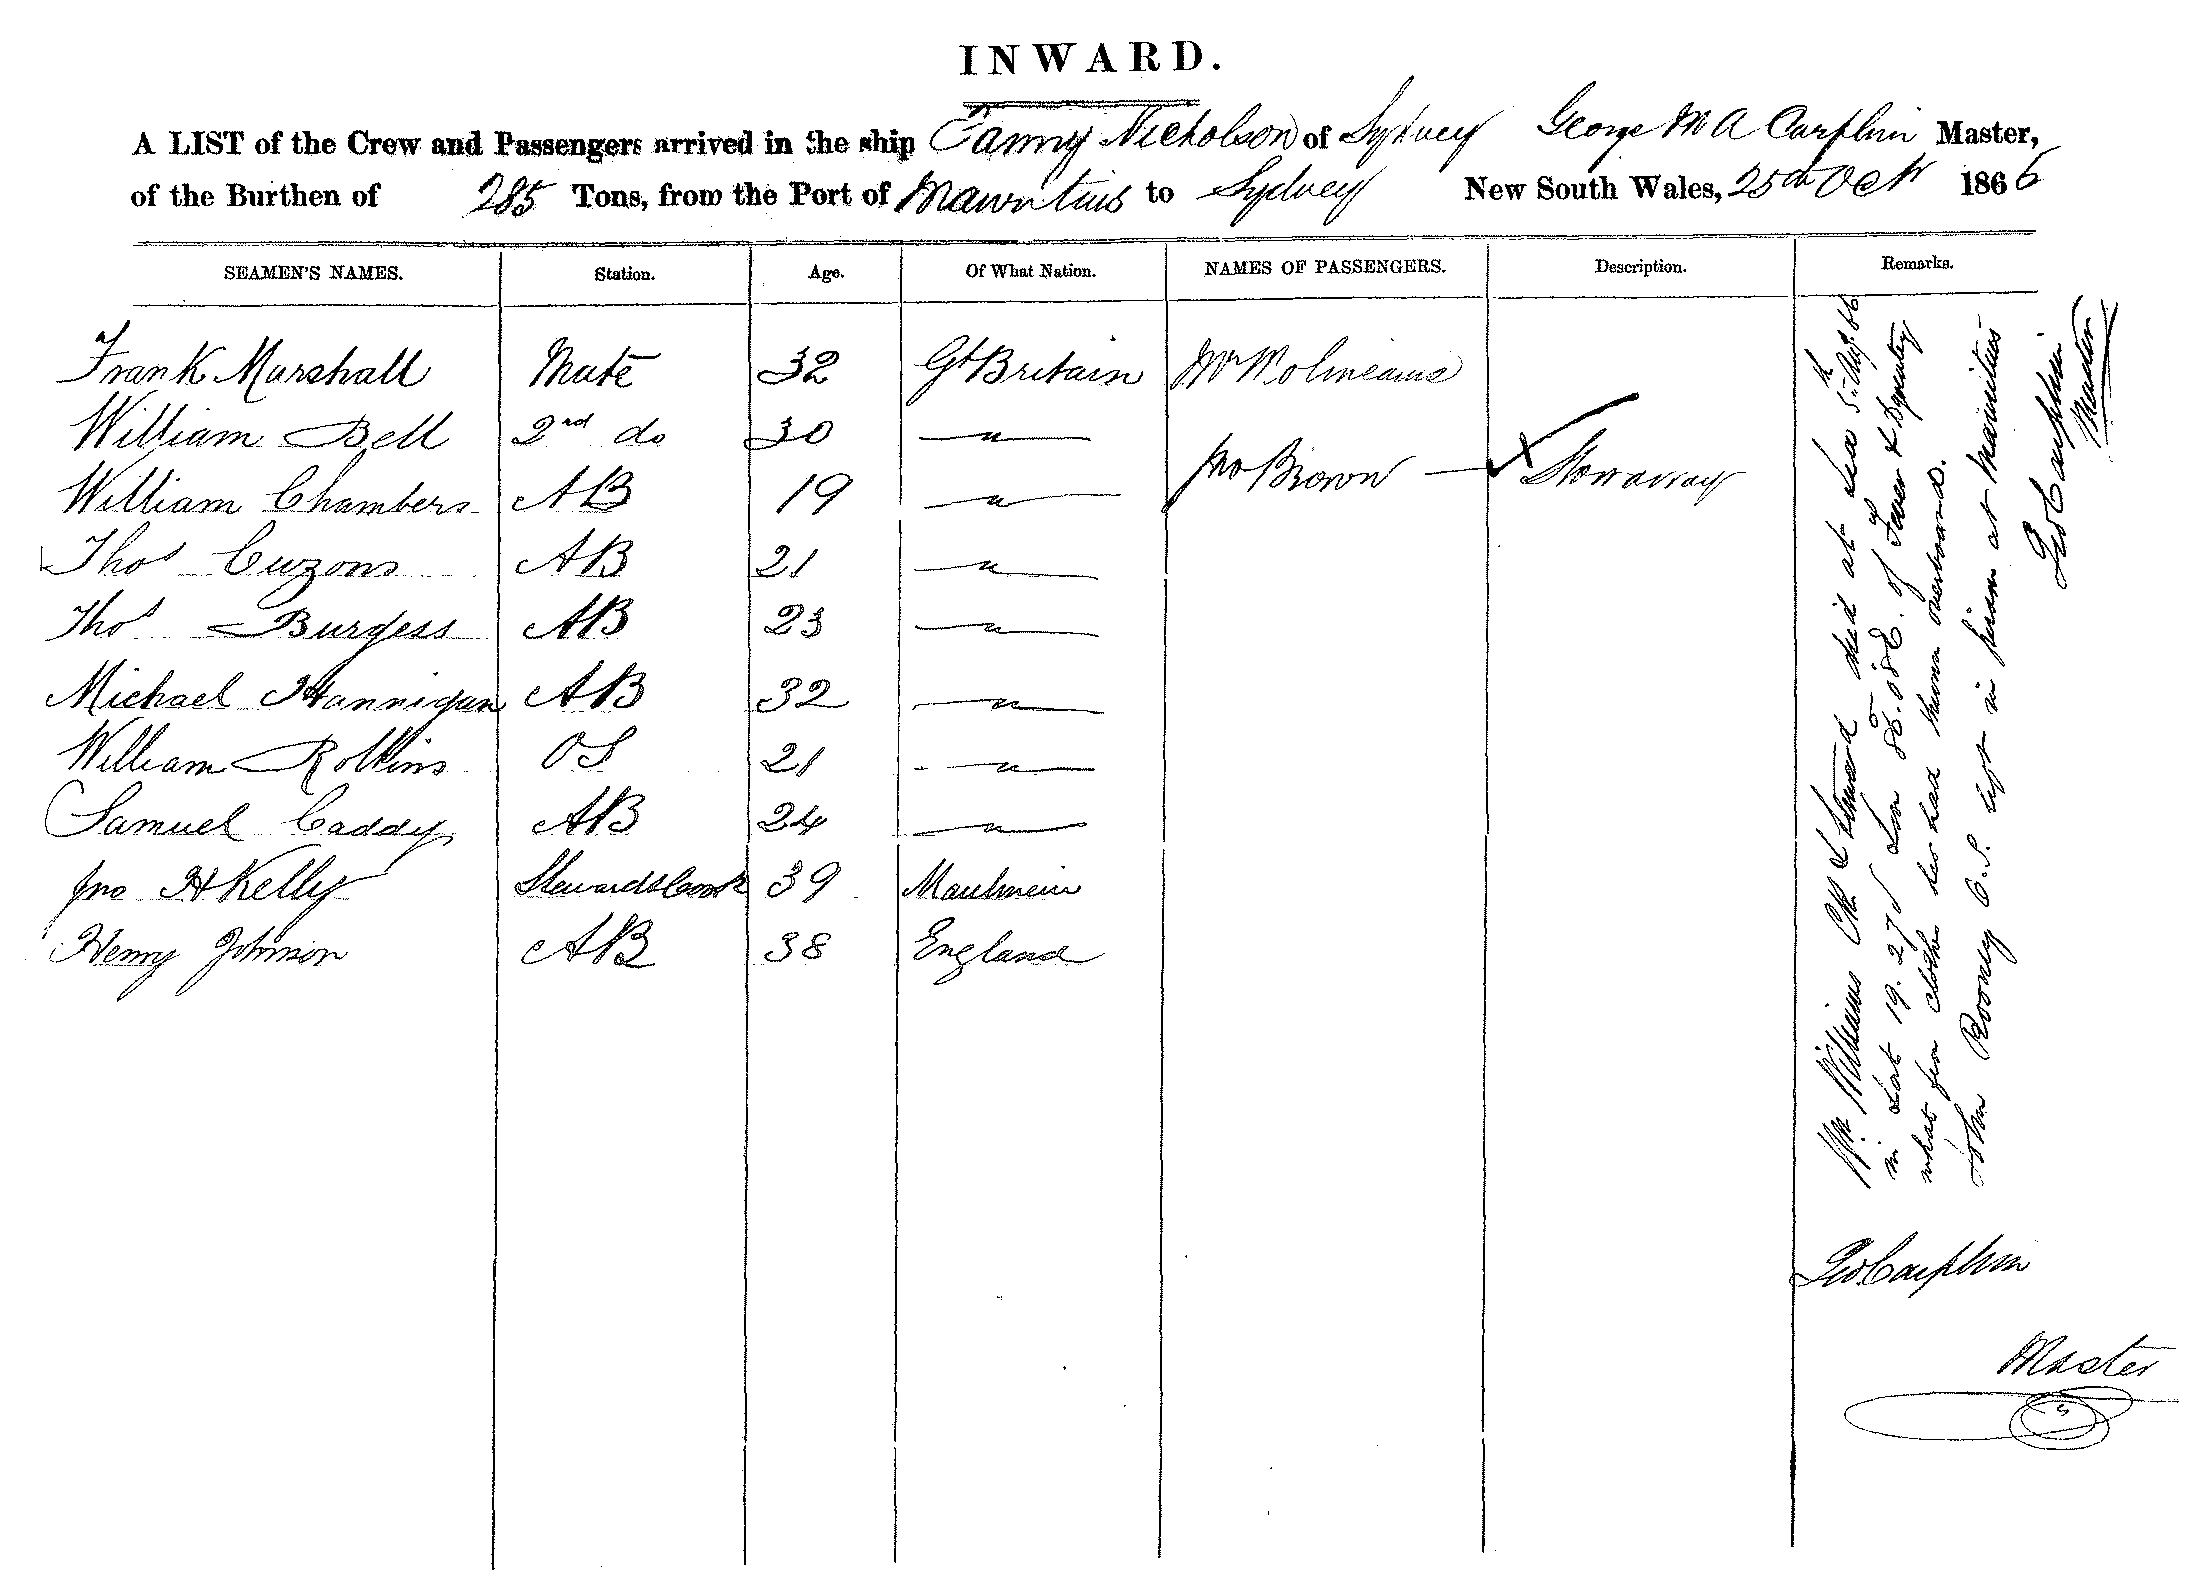 INWARD.
A LIST of the Crew and Passengers arrived in the ship Fanny Nicholson of Sydney George M A Carphin Master,
of the Burthen of 285 Tons, from the Port of Mauritius to Sydney New South Wales, 25th Oct 1866
SEAMEN'S NAMES. Station. Age. Of What Nation. NAMES OF PASSENGERS. Description. Remarks.
Frank Marshall Mate 32 Gt Britain Mr
William Bell 2nd do 30 — " —
Jno Brown — Stowaway
William Chambers AB 19 — " —
Thos Curzons AB 21 — " —
Thos Burgess AB 23 — " —
Michael Hannigan AB 32 — " —
William Rollins OS 21 — " —
Samuel Caddy AB 24 — " —
Jno H Kelly Steward & Cook 39 Maulmein
Henry Johnson AB 38 England
Wm Williams Ck & Steward died at Sea 5th Aug 66
in Lat 19.27 S Lon 86.08 E. of Fever & Dysentry
what few clothes he had thrown overboard.
John Rooney O.S. left in prison at Mauritius
Geo Carphin
Master
Geo Carphin
Master